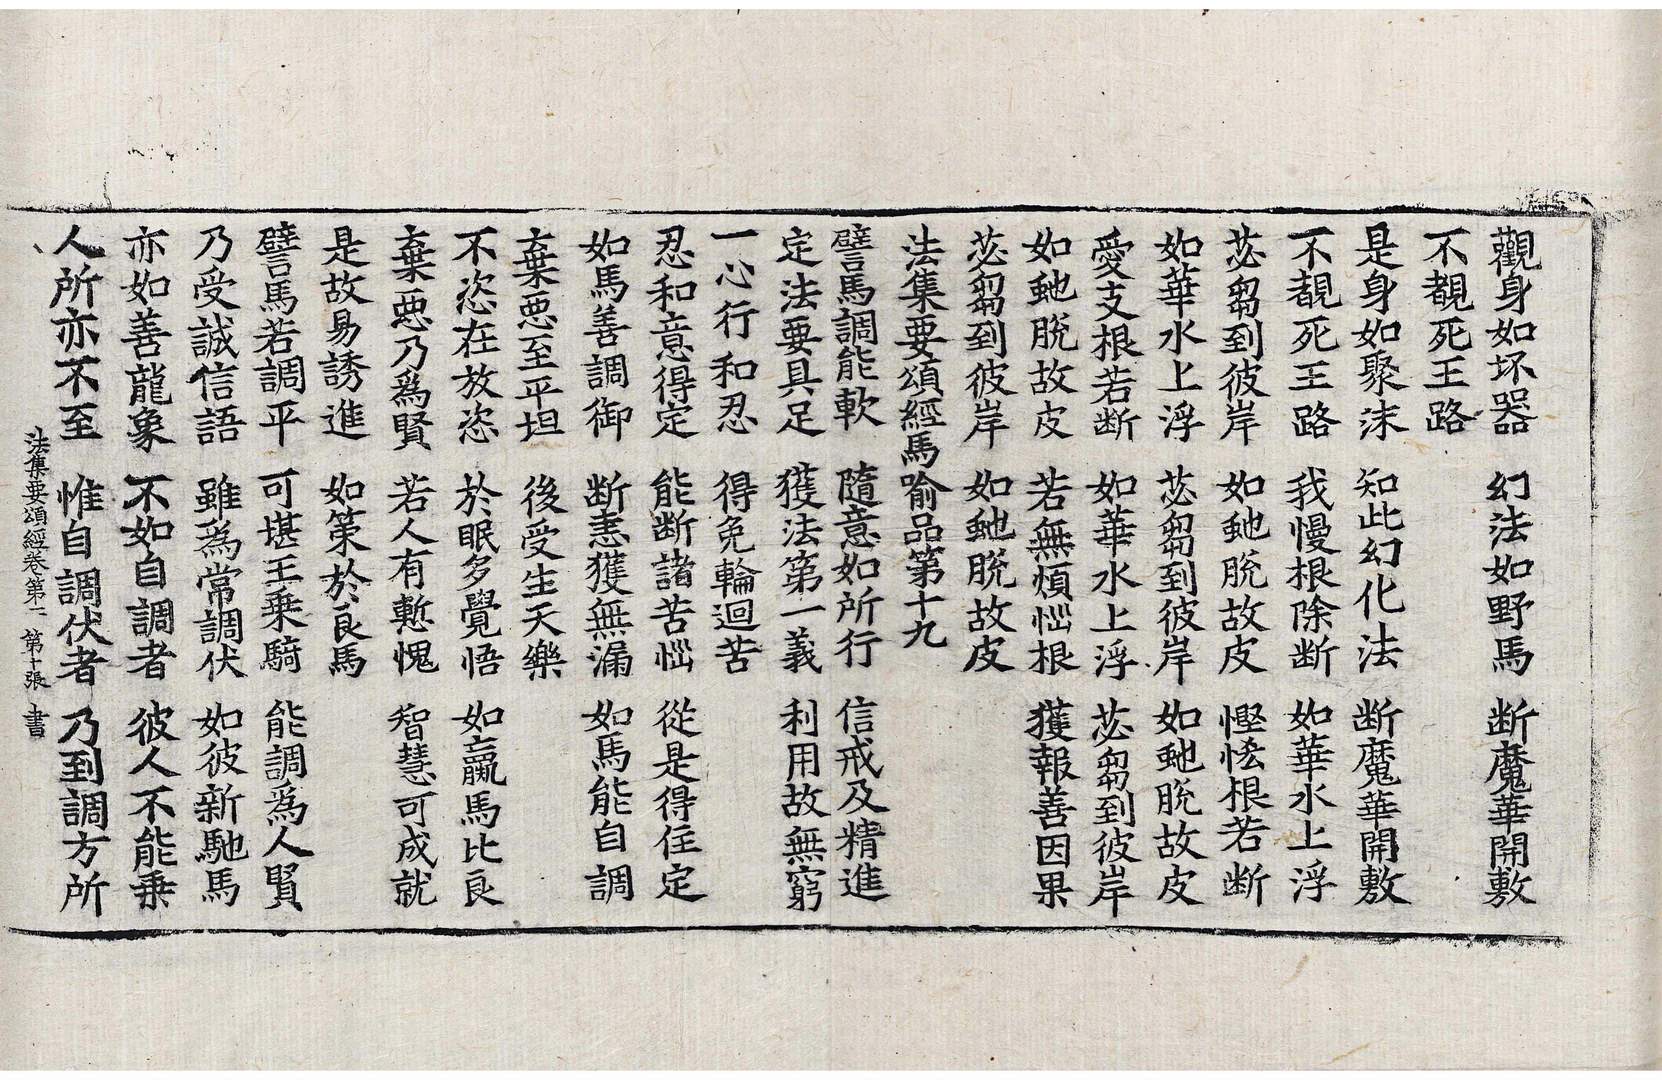 觀身如坏器　幻法如野馬　断魔華開敷
不覩死王路
是身如聚沫　知此幻化法　断魔華開敷
不覩死王路　我慢根除断　如華水上浮
苾芻到彼岸　如虵脫故皮　慳悋根若断
如華水上浮　苾芻到彼岸　如虵脫故皮
愛支根若断　如華水上浮　苾芻到彼岸
如虵脫故皮　若無煩惱根　獲報善因果
苾芻到彼岸　如虵脫故皮
法集要頌經馬喻品第十九
譬馬調能軟　隨意如所行　信戒及精進
定法要具足　獲法第一義　利用故無窮
一心行和忍　得免輪迴苦
忍和意得定　能断諸苦惱　從是得住定
如馬善調御　断恚獲無漏　如馬能自調
棄惡至平坦　後受生天樂
不恣在放恣　於眠多覺悟　如羸馬比良
棄惡乃爲賢　若人有慙愧　智慧可成就
是故易誘進　如策於良馬
譬馬若調平　可堪王乗騎　能調爲人賢
乃受誠信語　雖爲常調伏　如彼新馳馬
亦如善龍象　不如自調者　彼人不能乗
人所亦不至　惟自調伏者　乃到調方所
法集要頌經卷第二　第十張　書